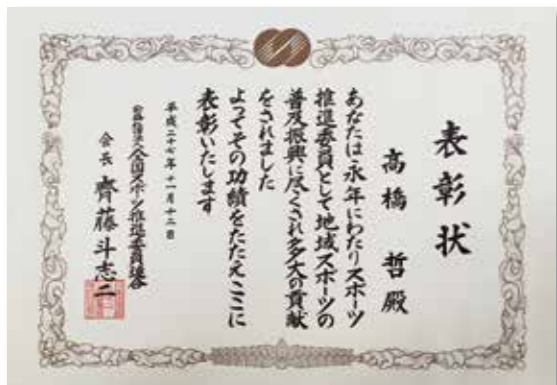 表彰状
高橋 哲 殿
あなたは永年にわたりスポーツ
推進委員として地域スポーツの
普及振興に尽くされ多大の貢献
をされました
よってその功績をたたえここに
表彰いたします
平成二十七年十一月十二日
公益社団法人全国スポーツ推進委員連合
会長 齊藤斗志二